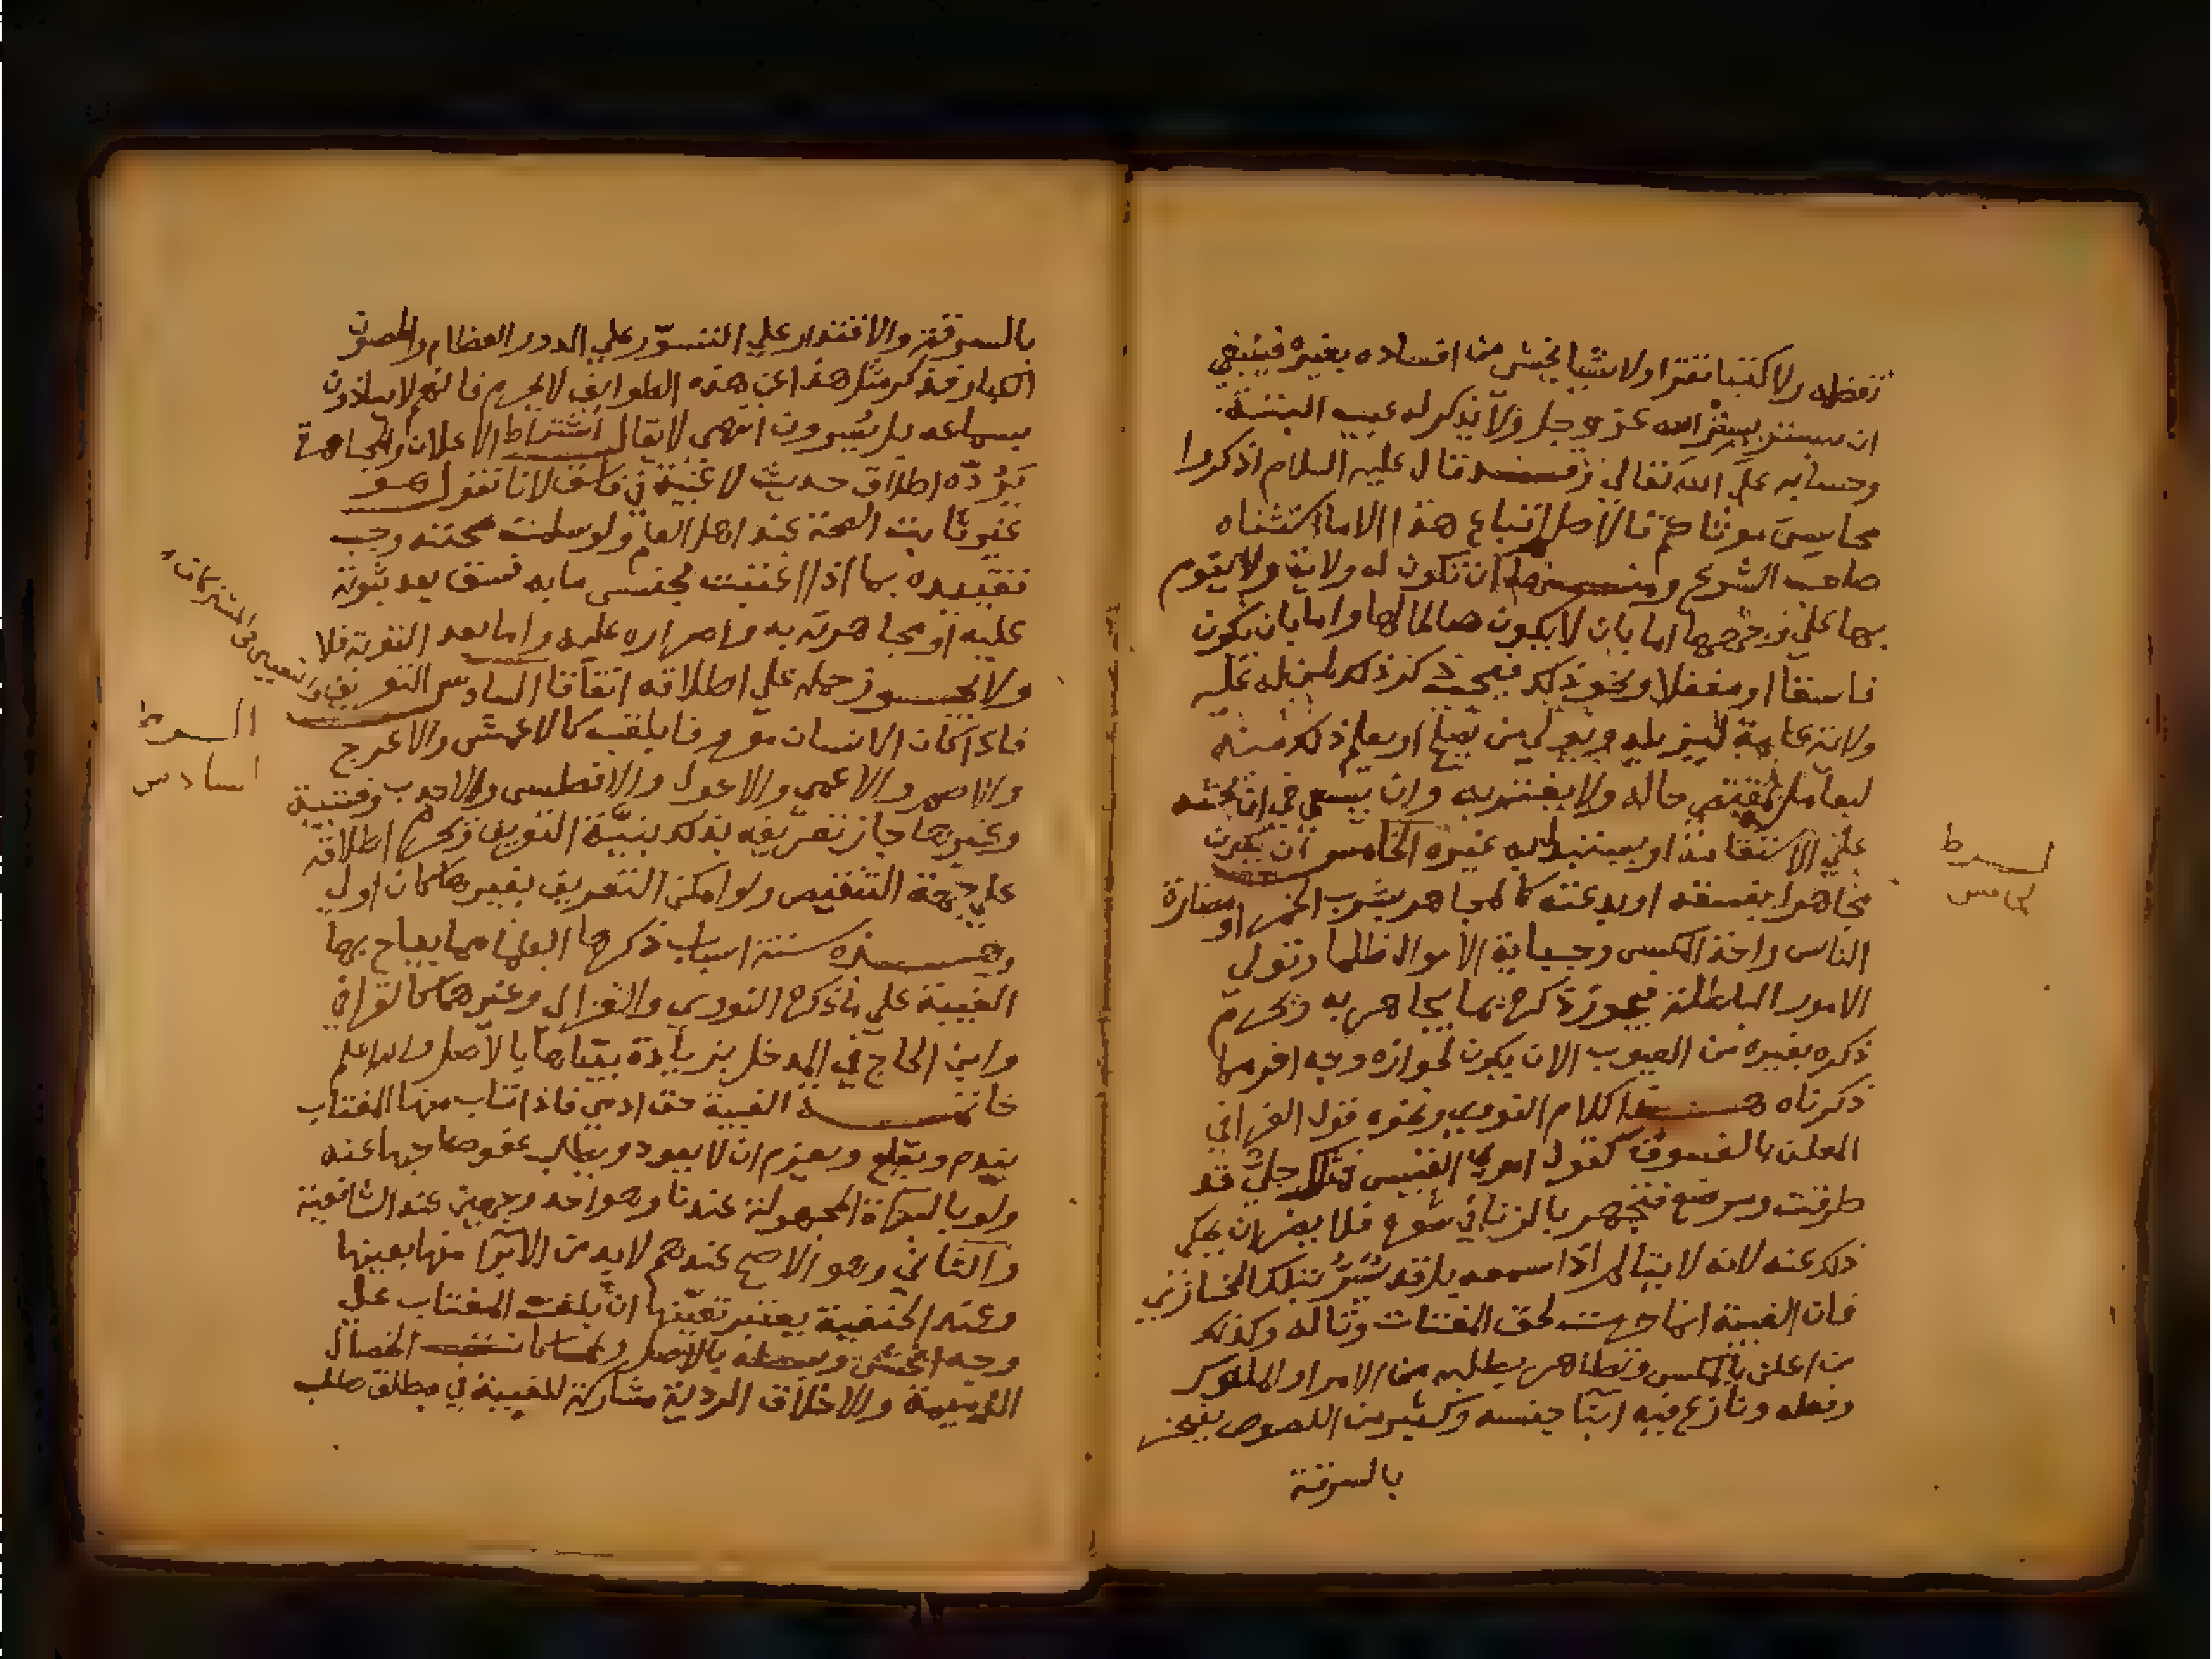 تفضله ولا كتبا تقرا ولا شيا يخش من افساده بغيره فينبغي
ان يستتر بستر الله عز وجل ولا يذكر له عيب البتة
وحسابه علي الله تعالي وقد قال عليه السلام اذكروا
محاسن موتاكم فالاصل اتباع هذا الا ما استثناه
صاحب الشرع ومنها ان تكون له ولاية ولا يقوم
بها علي وجهها اما بان لا يكون صالحا لها واما بان يكون
فاسقا او مغفلا ونحو ذلك فيجب ذكر ذلك لمن له عليه
ولاية عامة ليزيله ويولي من يصلح او يعلم ذلك منه
ليعامله بمقتضي حاله ولا يغتر به وان يسعي في ان يحثه
علي الاستقامة او يستبدل به غيره الخامس ان يكون
مجاهرا بفسقه او بدعته كالمجاهر بشرب الخمر او مصادرة
الناس واخذ المكس وجباية الاموال ظلما وتولي
الامور الباطلة فيجوز ذكره بما يجاهر به ويحرم
ذكره بغيره من العيوب الا ان يكون لجوازه وجه اخر مما
ذكرناه هذا كلام النووي ونحوه قول القرافي
المعلن بالفسوق كقول امري القيس فمثلك حبلي قد
طرقت ومرضع فتجهر بالزنا في شعره فلا يضر ان يحكي
ذلك عنه لانه لا يتالم اذا سمعه بل قد يسر بتلك المخازي
فان الغيبة انما حرمت لحق المغتاب وتالمه وكذلك
من اعلن بالمكس وتظاهر بطلبه من الامرا والملوك
وفعله ونازع فيه ابنا جنسه وكثير من اللصوص يفتخر
بالسرقة
الشرط
الخامس
بالسرقة والاقتدار علي التسور علي الدور العظام والحصون
الكبار فذكر مثل هذا عن هذه الطوايف لا يحرم فانهم لا يتاذون
بسماعه بل يسرون انتهي لا يقال اشتراط الاعلان والمجاهرة
يرده اطلاق حديث لا غيبة في فاسق لانا نقول هو
غير ثابت الصحة عند اهل العلم ولو سلمت صحته وجب
تقييده بما اذا اغتيب بجنس ما به فسق بعد ثبوته
عليه او مجاهرته به واصراره عليه واما بعد التوبة فلا
ولا يجوز حمله علي اطلاقه اتفاقا السادس التعريف والتعيين في المشتركات
فاذا كان الانسان معروفا بلقب كالاعمش والاعرج
والاصم والاعمي والاحول والافطس والاحدب وقتيبة
وغيرها جاز تعريفه بذلك بنية التعريف ويحرم اطلاقه
علي جهة التنقيص ولو امكن التعريف بغيرها كان اولي
وهذه ستة اسباب ذكرها العلما مما يباح بها
الغيبة علي ما ذكره النووي والغزالي وغيرهما كالقرافي
وابن الحاج في المدخل بزيادة بيناها بالاصل والله اعلم
خاتمة الغيبة حق ادمي فاذا تاب منها المغتاب
يندم ويقلع ويعزم ان لا يعود ويطلب عفو صاحبها عنه
ولو بالبراة المجهولة عندنا وهو احد وجهين عند الشافعية
والثاني وهو الاصح عندهم لا بد من الابرا منها بعينها
وعند الحنفية يعتبر تعيينها ان بلغت المغتاب علي
وجه افحش وبسطه بالاصل ولما كانت الخصال
الذميمة والاخلاق الردية مشاركة للغيبة في مطلق طلب
الشرط
السادس